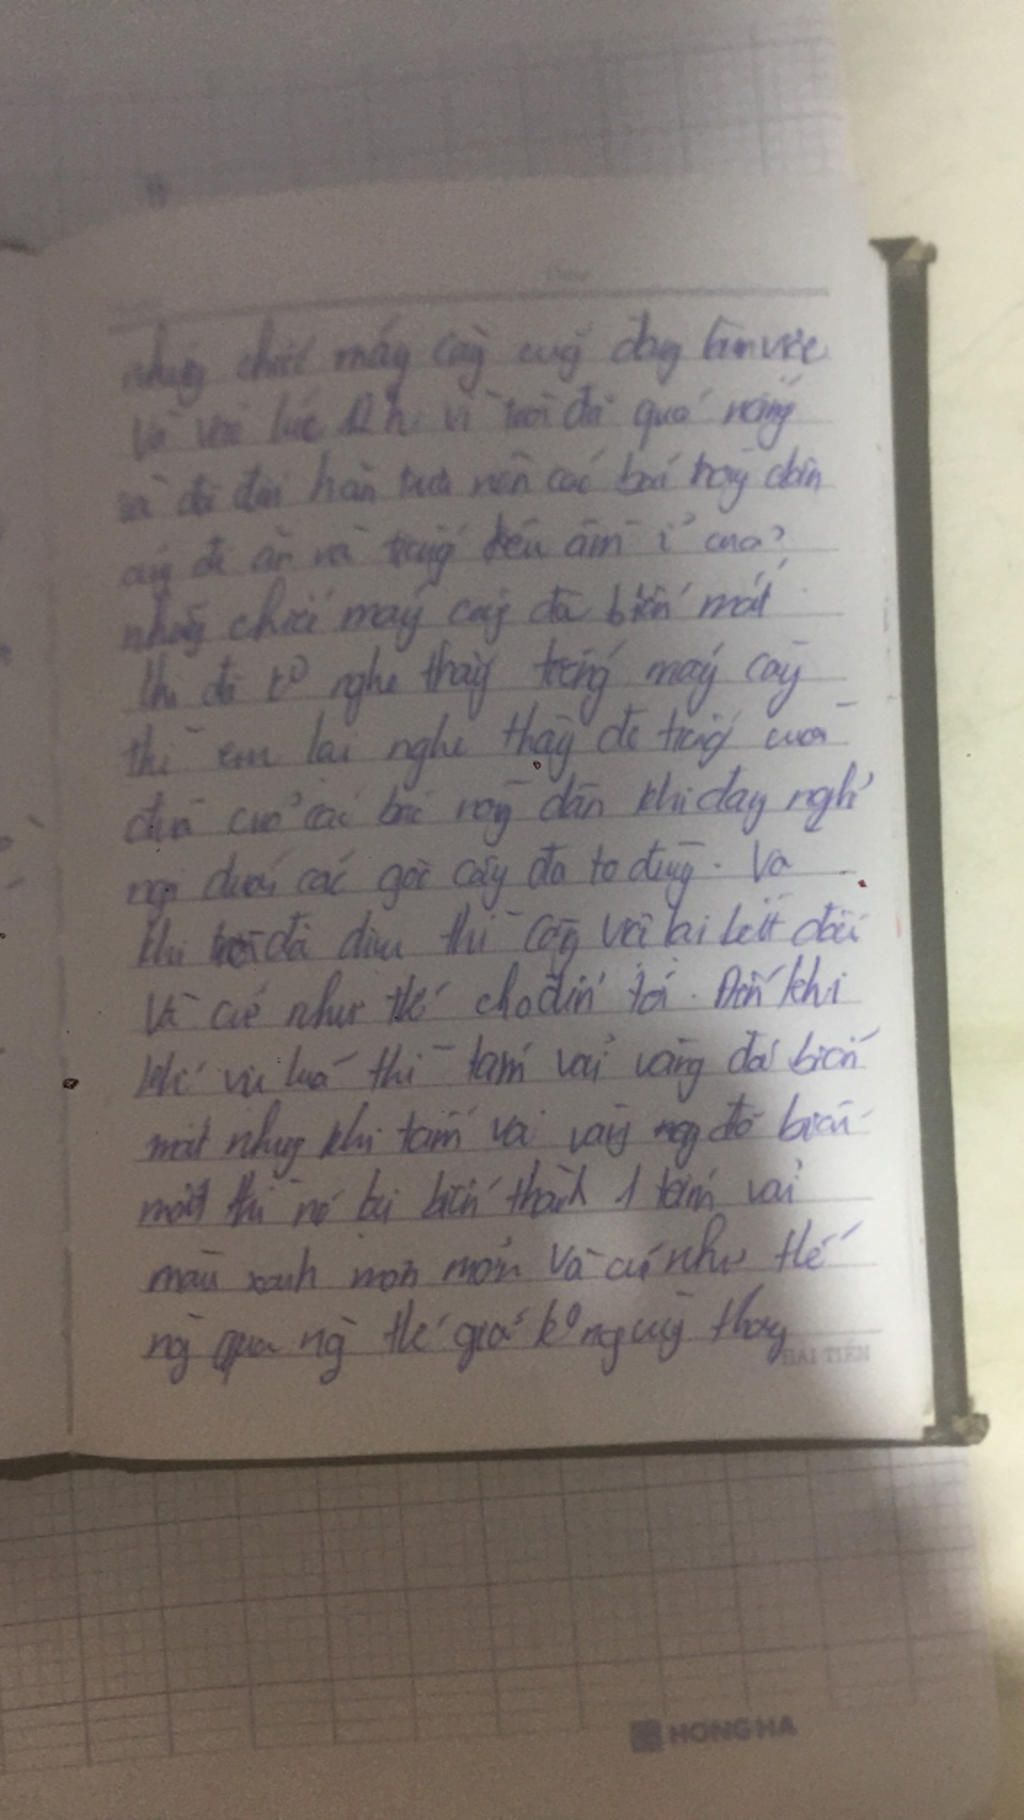 những chiếc máy cày cũg đag làm việc
Và vào lúc 12h vì trời đã quá nóng
và đã đói hơn nên các bác nôg dân
cũg đi ăn và tiếng kêu ầm ĩ của
những chiếc máy cày đã biến mất
khi đã k⁰ nghe thấy tiếng máy cày
thì em lại nghe thấy đc tiếng cười
đùa của các bác nôg dân khi đag nghỉ
ngơi dưới các gốc cây đa to đùg. Và
khi trời đã dịu thì côg việc lại bắt đầu
Và cứ như thế cho đến tối. Đến khi
hết vụ lúa thì tấm vải vàng đã biến
mất nhưg khi tấm vải vàng đó biến
mất thì nó lại biến thành 1 tấm vải
màu xanh mơn mởn Và cứ như thế
ng` qua ng` thế giới k⁰ ngừng thay
HẢI TIẾN
HONG HA